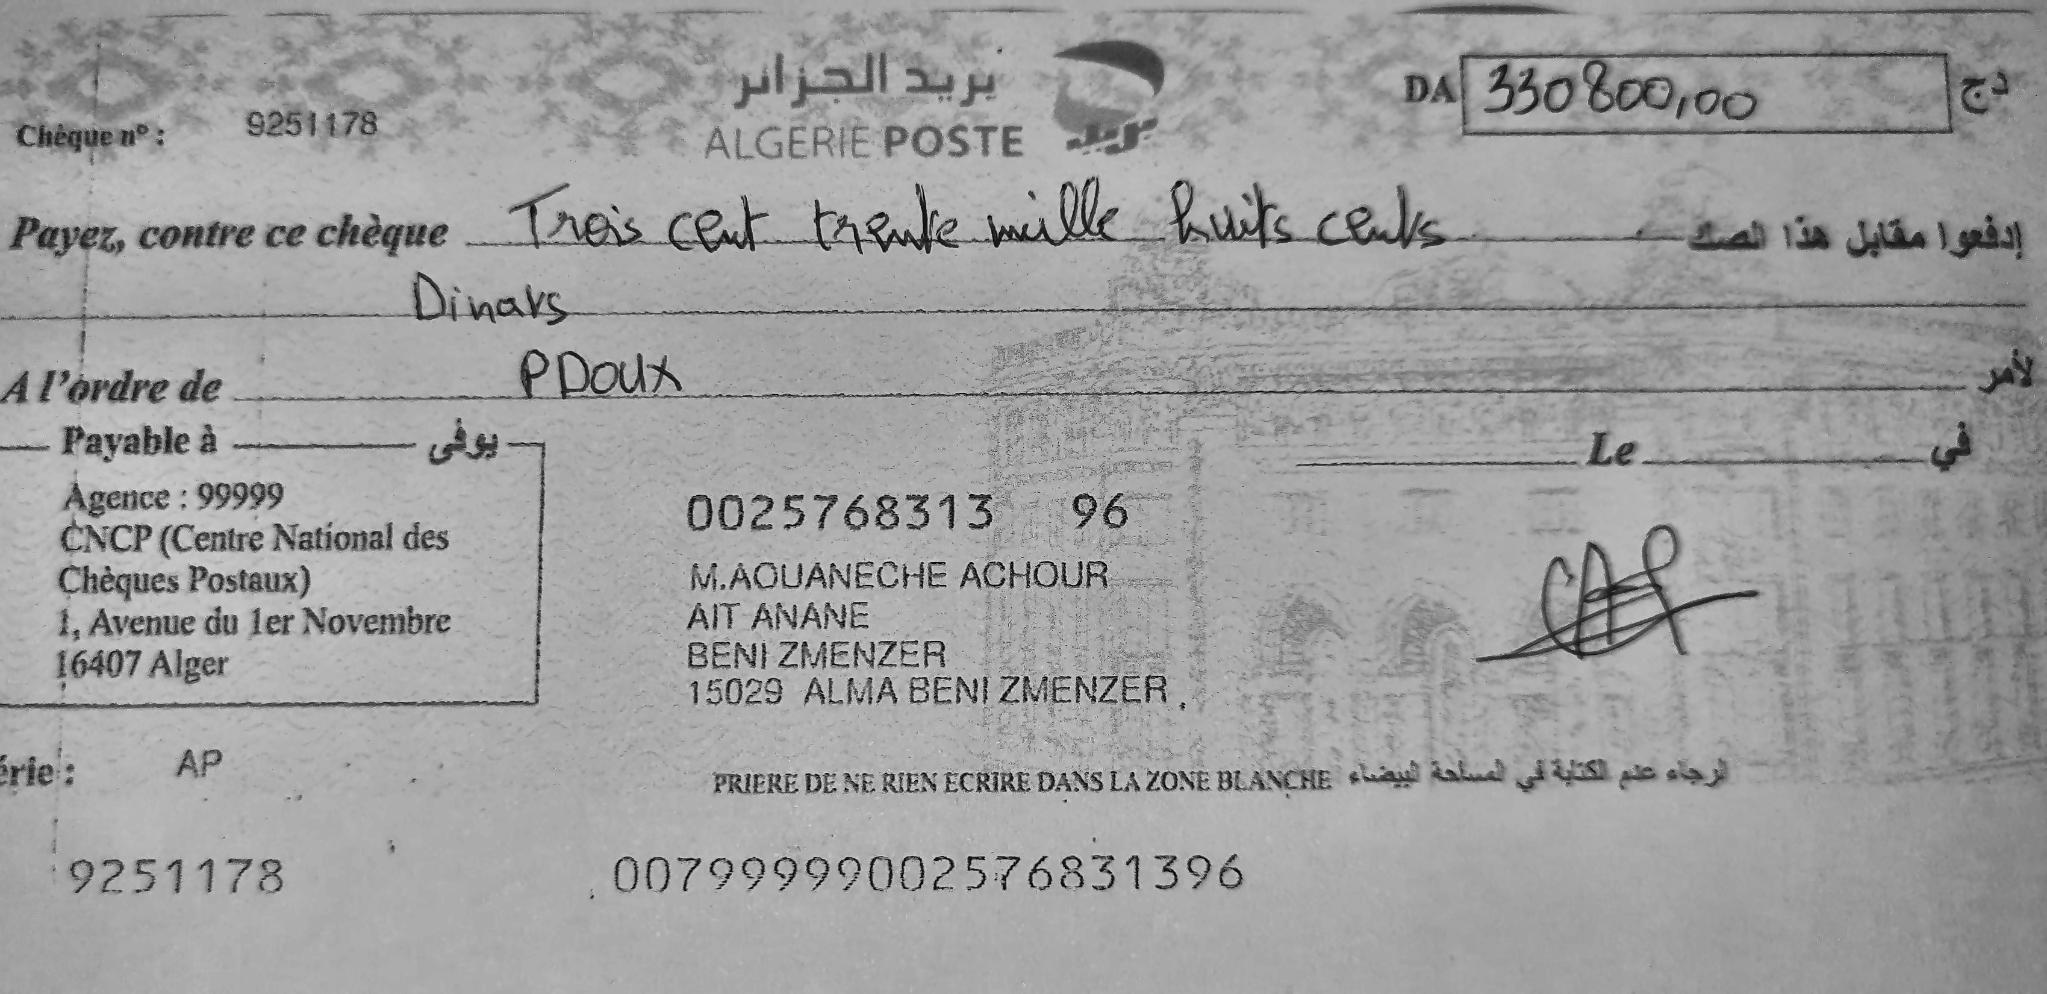 بريد الجزائر
ALGERIE POSTE
بريد
Chèque n° : 9251178
DA 330800,00 دج
Payez, contre ce chèque Trois cent trente mille huits cents إدفعوا مقابل هذا الصك
Dinars
A l'ordre de PDoux لأمر
Payable à يوفى
Le في
Agence : 99999
CNCP (Centre National des
Chèques Postaux)
1, Avenue du 1er Novembre
16407 Alger
0025768313 96
M.AOUANECHE ACHOUR
AIT ANANE
BENI ZMENZER
15029 ALMA BENI ZMENZER
érie : AP
PRIERE DE NE RIEN ECRIRE DANS LA ZONE BLANCHE لرجاء عدم الكتابة في لمساحة لبيضاء
9251178 00799999002576831396